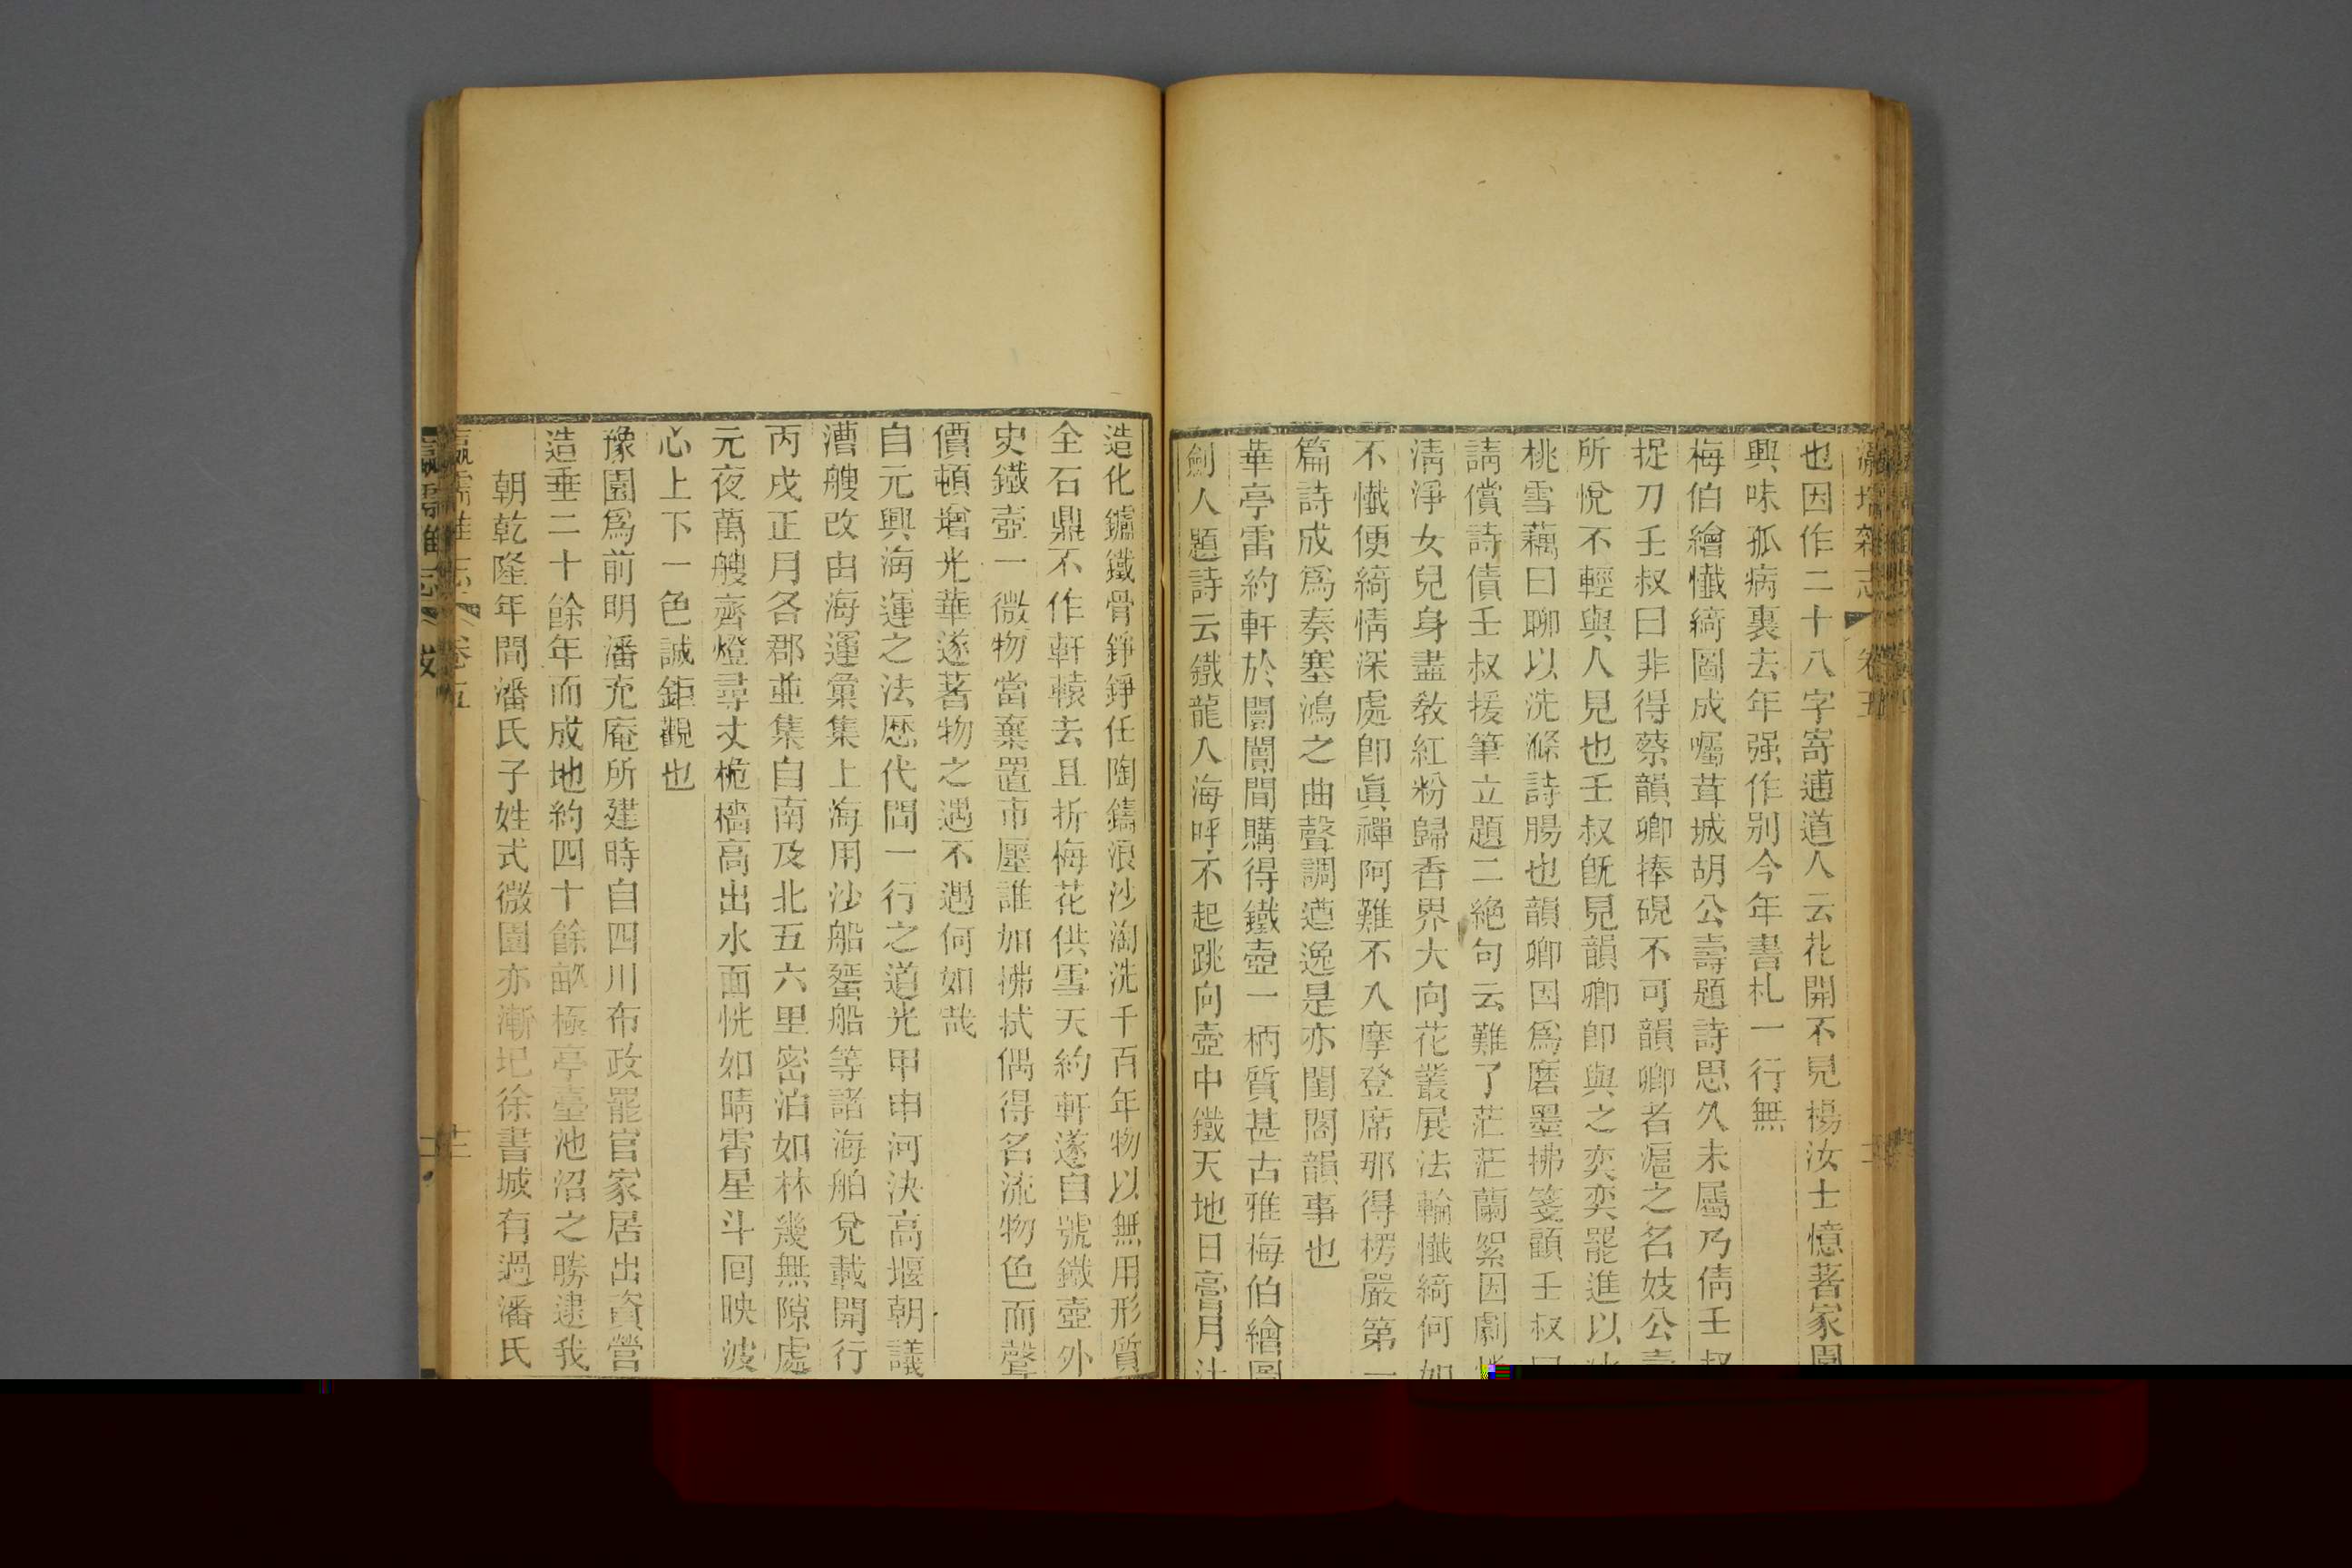 也因作二十八字寄逋道人云花開不見楊汝士憶著家園
興味孤病裏去年强作别今年書札一行無
梅伯繪懺綺圖成囑茸城胡公壽題詩思久未屬乃倩壬叔
捉刀壬叔曰非得蔡韻卿捧硯不可韻卿者滬之名妓公壽
所悅不輕與人見也壬叔旣見韻卿卽與之奕奕罷進以
桃雪藕曰聊以洗滌詩腸也韻卿因爲磨墨拂箋顧壬叔曰
請償詩債壬叔援筆立題二絶句云難了茫茫蘭絮因劇憐
淸淨女兒身盡敎紅粉歸香界大向花叢展法輪懺綺何如
不懺便綺情深處卽眞禪阿難不入摩登席那得楞嚴第一
篇詩成爲奏塞鴻之曲聲調遒逸是亦閨閣韻事也
華亭雷約軒於闤闠間購得鐵壺一柄質甚古雅梅伯繪圖
劍人題詩云鐵龍入海呼不起跳向壺中鐵天地日膏月汁
造化鑪鐵骨錚錚任陶鑄浪沙淘洗千百年物以無用形質
全石鼎不作軒轅去且折梅花供雪天約軒遂自號鐵壺外
史鐵壺一微物當棄置市廛誰加拂拭偶得名流物色而聲
價頓增光華遂著物之遇不遇何如哉
自元興海運之法歷代間一行之道光甲申河決高堰朝議
漕艘改由海運彙集上海用沙船蜑船等諸海舶兌載開行
丙戌正月各郡並集自南及北五六里密泊如林幾無隙處
元夜萬艘齊燈尋丈桅檣高出水面恍如晴霄星斗回映波
心上下一色誠鉅觀也
豫園爲前明潘充庵所建時自四川布政罷官家居出資營
造垂二十餘年而成地約四十餘畝極亭臺池沼之勝逮我
朝乾隆年間潘氏子姓式微園亦漸圮徐書城有過潘氏
瀛壖雜志 卷五